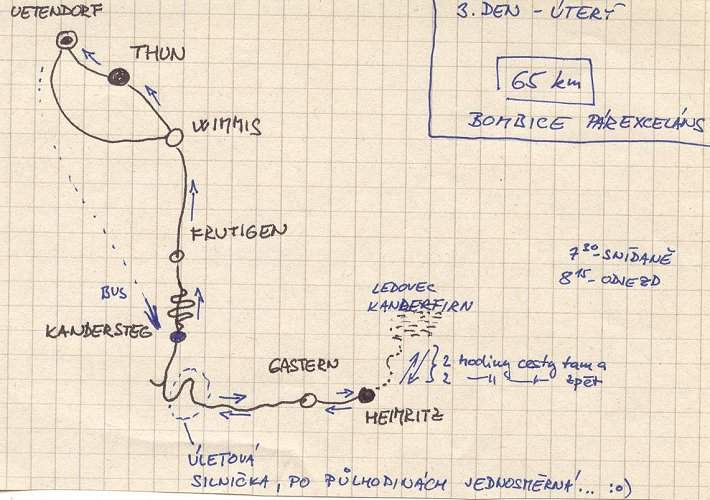 UETENDORF
3. DEN - ÚTERÝ
THUN
65 km
WIMMIS
BOMBICE PÁREXCELÁNS
FRUTIGEN
7³⁰-SNÍDANĚ
8¹⁵-ODJEZD
BUS
LEDOVEC
KANDERFIRN
KANDERSTEG
GASTERN
2 hodiny cesty tam a
2 —"— —"— zpět
HEIMRITZ
ÚLETOVÁ
SILNIČKA, PO PŮLHODINÁCH JEDNOSMĚRNÁ... :o)